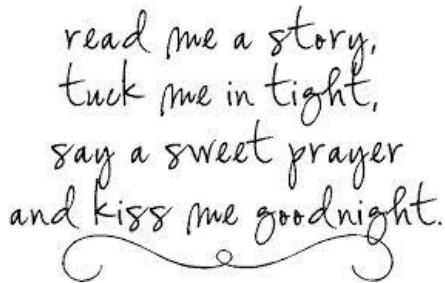 read me a story,
tuck me in tight,
say a sweet prayer
and kiss me goodnight.